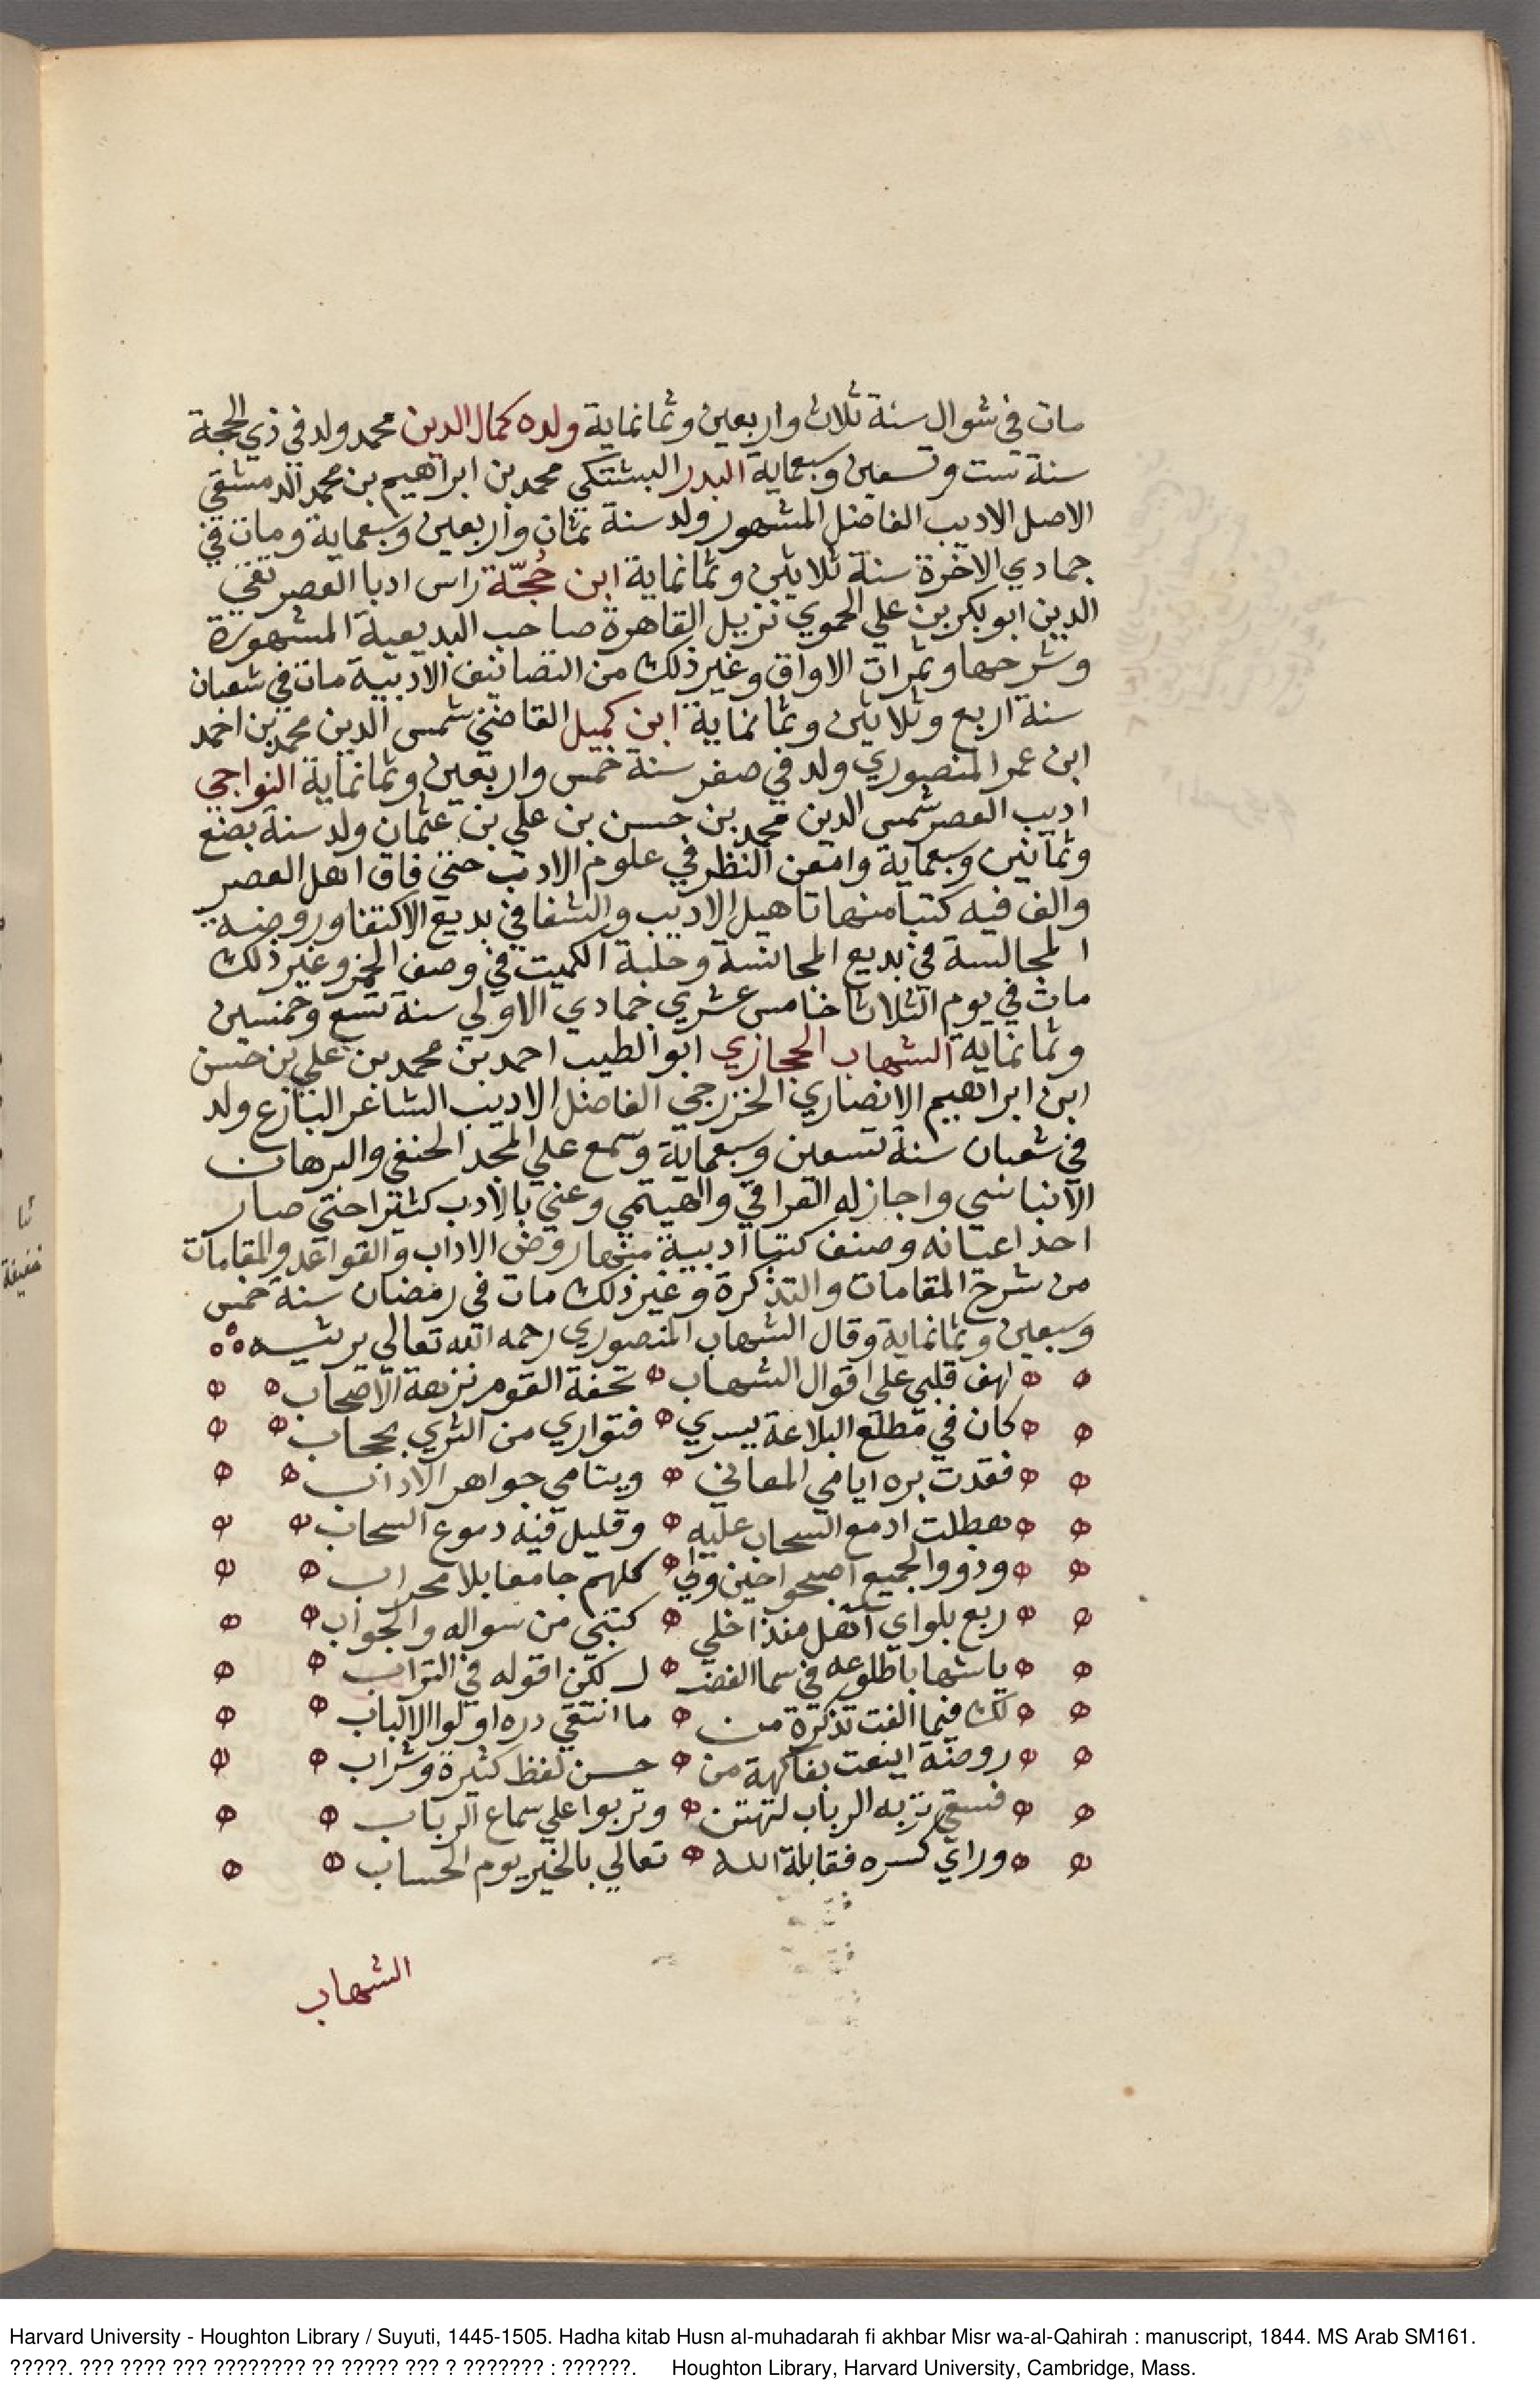 مات في شوال سنة ثلاث واربعين وثمانماية ولده كمال الدين محمد ولد في ذي الحجة
سنة ست وتسعين وسبعماية البدر البشتكي محمد بن ابراهيم بن محمد الدمشقي
الاصل الاديب الفاضل المشهور ولد سنة ثمان واربعين وسبعماية ومات في
جمادي الاخرة سنة ثلاثين وثمانماية ابن حُجّة راس ادبا العصر تقي
الدين ابو بكر بن علي الحموي نزيل القاهرة صاحب البديعية المشهورة
وشرحها وثمرات الاواق وغير ذلك من التصانيف الادبية مات في شعبان
سنة اربع وثلاثين وثمانماية ابن كميل القاضي شمس الدين محمد بن احمد
ابن عمر المنصوري ولد في صفر سنة خمس واربعين وثمانماية النواجي
اديب العصر شمس الدين محمد بن حسن بن علي بن عثمان ولد سنة بضع
وثمانين وسبعماية وامعن النظر في علوم الادب حتي فاق اهل العصر
والف فيه كتبا منها تاهيل الاديب والشفا في بديع الاكتفا وروضة
المجالسة في بديع المجانسة وحلبة الكميت في وصف الخمر وغير ذلك
مات في يوم الثلاثا خامس عشري جمادي الاولي سنة تسع وخمسين
وثمانماية الشهاب الحجازي ابو الطيب احمد بن محمد بن علي بن حسن
ابن ابراهيم الانصاري الخزرجي الفاضل الاديب الشاعر البارع ولد
في شعبان سنة تسعين وسبعماية وسمع علي المجد الحنفي والبرهان
الانباسي واجاز له العراقي والهيتمي وعني بالادب كثيرا حتي صار
احد اعيانه وصنف كتبا ادبية منها روض الاداب والقواعد والمقامات
من شرح المقامات والتذكرة وغير ذلك مات في رمضان سنة خمس
وسبعين وثمانماية وقال الشهاب المنصوري رحمه الله تعالي يرثيه
لهف قلبي علي اقوال الشهاب تحفة القوم نزهة الاصحاب
كان في مطلع البلاغة يسري فتواري من الثري بحجاب
فقدت بره ايامي المعاني ويتامي جواهر الاداب
هطلت ادمع السحاب عليه وقليل فيه دموع السحاب
وذووا الجميع اصبحوا حين ولي كلهم جامعا بلا محراب
ربع بلواي اهل منذ اخلي كتبي من سواله والجواب
يا شهابا طلوعه في سما الفضـ ـل لكن اقوله في التراب
لك فيما الفت تذكرة من ما انتقي دره اولوا الالباب
روضة اينعت بفاكهة من حسن لفظ كثيرة وشراب
فسقي تربه الرباب لتهتن وتربوا علي سماع الرباب
وراي كسره فقابلة الله تعالي بالخير يوم الحساب
الشهاب
Harvard University - Houghton Library / Suyuti, 1445-1505. Hadha kitab Husn al-muhadarah fi akhbar Misr wa-al-Qahirah : manuscript, 1844. MS Arab SM161.
?????. ??? ???? ??? ???????? ?? ????? ??? ? ??????? : ??????. Houghton Library, Harvard University, Cambridge, Mass.